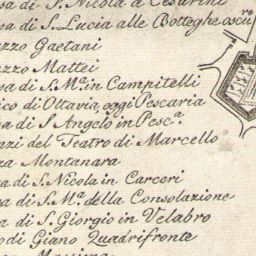 sa di S. Nicola a Cesarini
sa di S. Lucia alle Botteghe oscu
azzo Gaetani
azzo Mattei
sa di S. Mª. in Campitelli
ico di Ottavia, oggi Pescaria
sa di S Angelo in Pescª.
nzi del Teatro di Marcello
zza Montanara
sa di S. Nicola in Carceri
sa di S. Mª. della Consolazione
sa di S. Giorgio in Velabro
o di Giano Quadrifronte